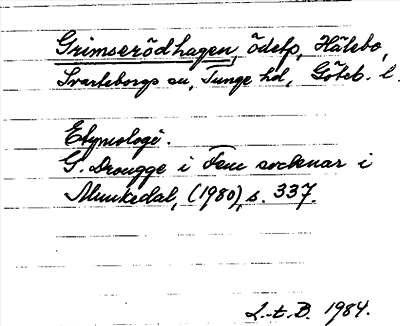 Grimserödhagen, ödetp, Hälebo,
Svarteborgs sn, Tunge hd, Göteb. l.
Etymologi.
G. Drougge i Fem socknar i
Munkedal, (1980), s. 337.
L.-t. B. 1984.